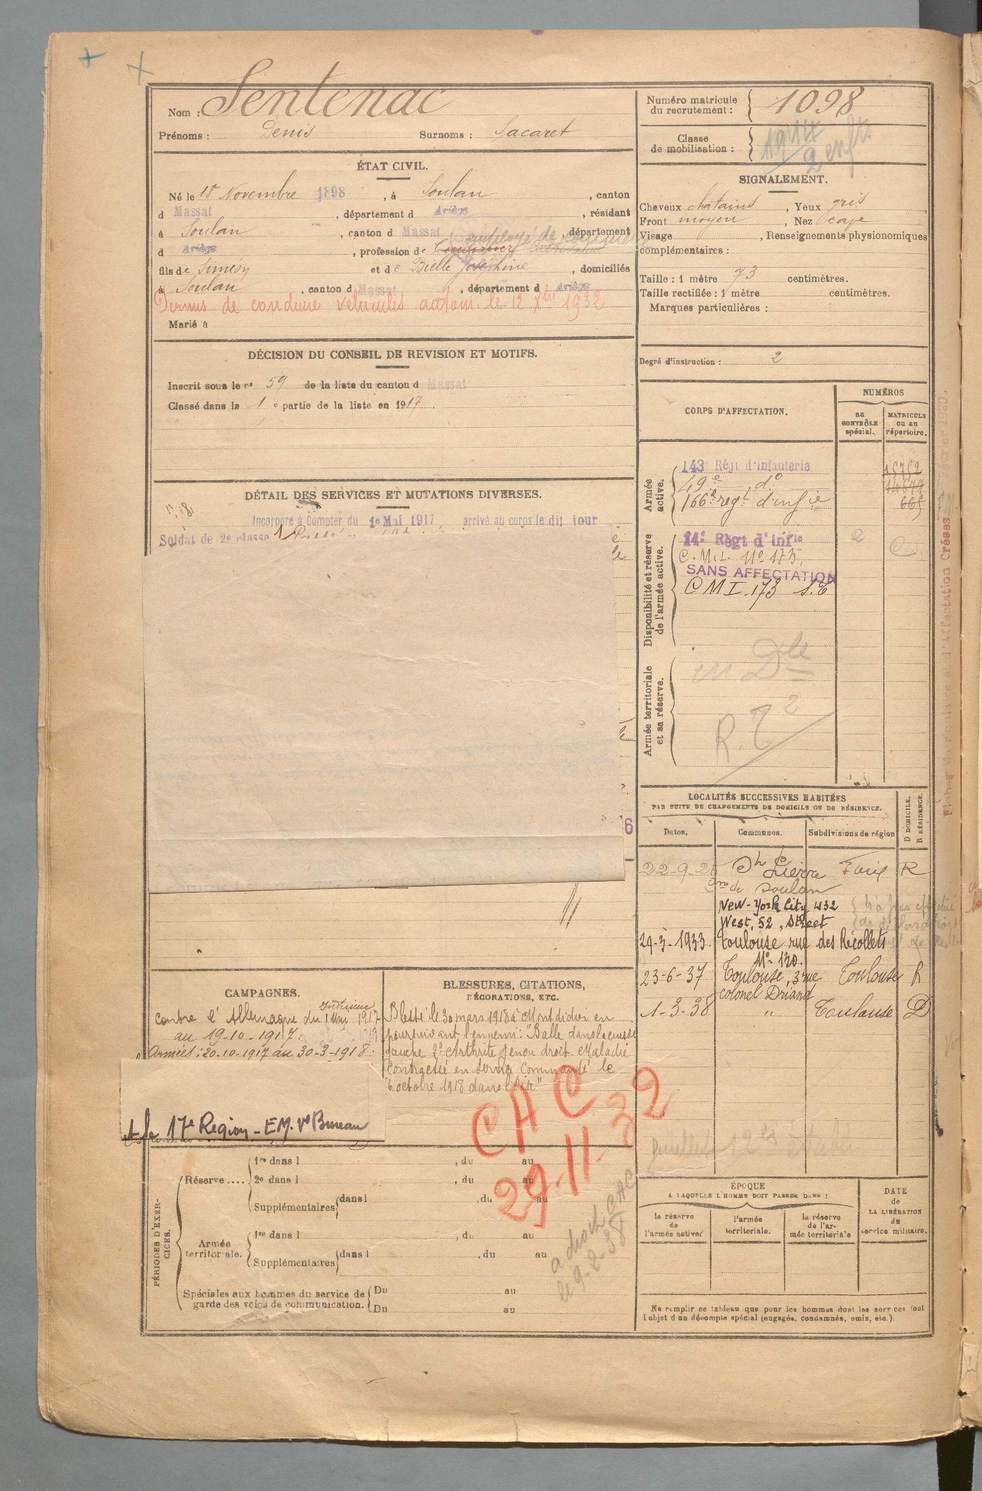 Nom : Sentenac
Prénoms : Denis Surnoms : Sacaret
ÉTAT CIVIL.
Né le 18 Novembre 1898, à Soulan, canton
d Massat, département d Ariège, résident
à Soulan, canton d Massat, département
d Ariège, profession de employé de
fils de Simeon et de Bielle Josephine, domiciliés
à Soulan, canton d Massat, département d Ariège
Permis de conduire véhicules autom. le 12 Xbre 1932
Marié à
DÉCISION DU CONSEIL DE REVISION ET MOTIFS.
Inscrit sous le n° 59 de la liste du canton d Massat
Classé dans la 1e partie de la liste en 1917.
DÉTAIL DES SERVICES ET MUTATIONS DIVERSES.
Incorporé à compter du 1er Mai 1917 arrivé au corps le dit jour
Soldat de 2e classe
CAMPAGNES.
contre l'Allemagne
Intérieur
du 1 Mai 1917
au 19-10-1917
Armées : 20-10-1917 au 30-3-1918
17e Région - EM. Vo Bureau
BLESSURES, CITATIONS,
DÉCORATIONS, ETC.
Blessé le 30 mars 1918 à Montdidier en
poursuivant l'ennemi : "Balle dans la cuisse
gauche 2° Arthrite genou droit. Maladie
Contractée en service commandé le
6 octobre 1918
CAC
29-11-32
a droit CAC
le 9-2-38
PÉRIODES D'EXERCICES.
Réserve ....
1re dans l , du au
2e dans l , du au
Supplémentaires dans l , du au
Armée territoriale.
1re dans l , du au
Supplémentaires dans l , du au
Spéciales aux hommes du service de garde des voies de communication.
Du au
Du au
Numéro matricule du recrutement : 1098
Classe de mobilisation :
2 enfts
SIGNALEMENT.
Cheveux chatains, Yeux gris
Front moyen, Nez cave
Visage , Renseignements physionomiques
complémentaires :
Taille : 1 mètre 73 centimètres.
Taille rectifiée : 1 mètre centimètres.
Marques particulières :
Degré d'instruction : 2
CORPS D'AFFECTATION.
NUMÉROS
au CONTRÔLE spécial.
MATRICULE ou au répertoire.
Armée active.
143e Régt d'infanterie
49e do
166e regt d'infie 665
Disponibilité et réserve de l'armée active.
14e Régt d'Infie
C.M.I. No 173.
SANS AFFECTATION
C M I. 173
Armée territoriale et sa réserve.
en Dle
R. T 2
LOCALITÉS SUCCESSIVES HABITÉES
PAR SUITE DE CHANGEMENTS DE DOMICILE OU DE RÉSIDENCE.
Dates. Communes. Subdivisions de région D DOMICILE. R RÉSIDENCE.
Foix R
Cne de Soulan
New-York City 432
West, 52, Street
29-3-1933. Toulouse rue des Récollets
No 120.
23-6-37 Toulouse, 3 rue Toulouse R
colonel Driant
1-3-38 " Toulouse D
ÉPOQUE
A LAQUELLE L'HOMME DOIT PASSER DANS :
la réserve de l'armée active
l'armée territoriale.
la réserve de l'armée territoriale
DATE de LA LIBÉRATION du service militaire.
Ne remplir ce tableau que pour les hommes dont les services font
l'objet d'un décompte spécial (engagés, condamnés, omis, etc.).